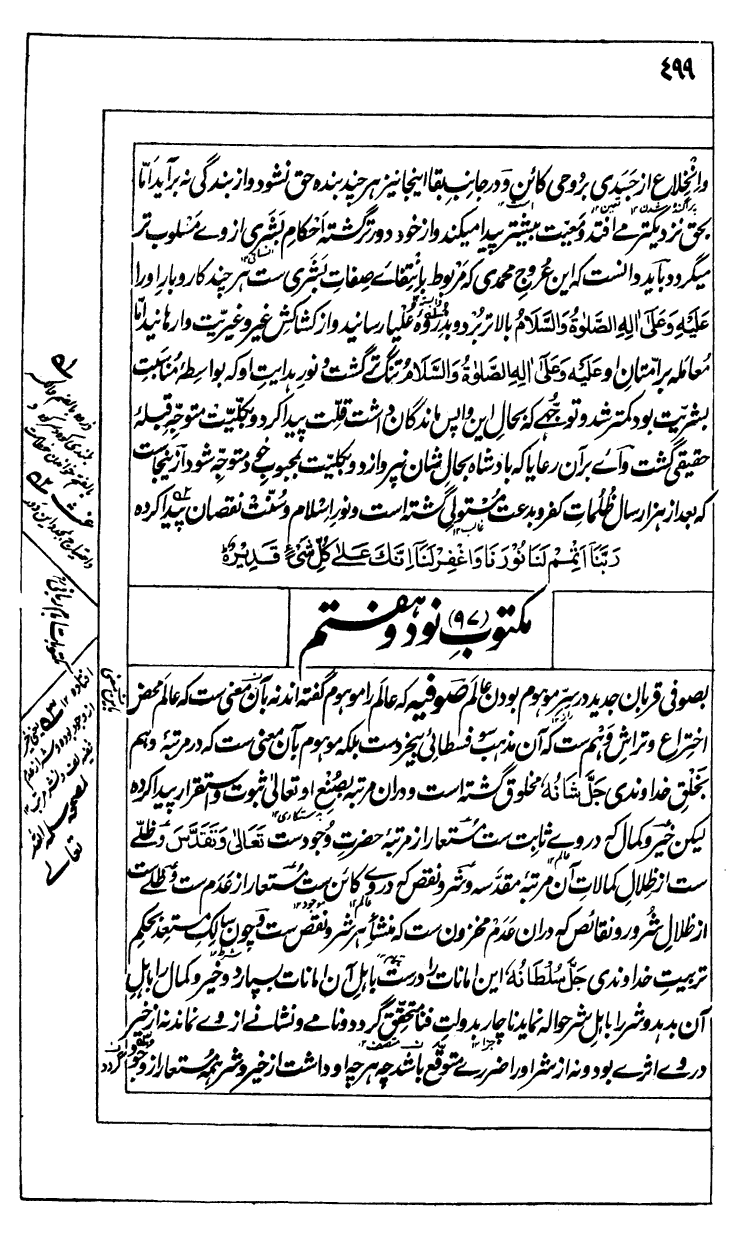 ٤٩٩
وانخلاع از جسدی بروحی کائن و در جانب بقا اینجا نیز هر چند بنده حق نشود و از بندگی نه برآید امّا
بحق نزدیکتر مے افتد و معیت بیشتر پیدا میکند و از خود دور تر گشته احکام بشری از وے مسلوب تر
میگردد باید دانست که این عروج محمدی که مربوط بانتفاے صفات بشری ست هر چند کاروبار او را
عَلَیْهِ وَعَلیٰ اٰلِهِ الصَّلوٰةُ وَالسَّلَامُ بالاتر برد و بذروهٔ علیا رسانید و از کشاکش غیر و غیریت وارهانید امّا
معامله بر امتان او عَلَیْهِ وَعَلیٰ اٰلِهِ الصَّلوٰةُ وَالسَّلَامُ تنگ تر گشت و نور هدایت او که بواسطهٔ مناسبت
بشریت بود کمتر شد و توجّهے که بحال این واپس ماندگان داشت قلّت پیدا کرد و بکلّیّت متوجّه قبلهٔ
حقیقی گشت واے برآن رعایا که بادشاه بحال شان نپردازد و بکلیت بمحبوب خود متوجه شود از ینجاست
که بعد از هزار سال ظلمات کفر و بدعت مستولی گشته است و نور اسلام و سنّت نقصان پیدا کرده
رَبَّنَا اَتْمِمْ لَنَا نُوْرَنَا وَاغْفِرْ لَنَا اِنَّكَ عَلیٰ كُلِّ شَیْءٍ قَدِیْرٌ
مکتوب (٩٧) نود و هفتم
بصوفی قربان جدید در سرّ موهوم بودن عالم صوفیه که عالم را موهوم گفته اند نه بآن معنی ست که عالم محض
اختراع و تراش وهم ست که آن مذهب سوفسطائی بیخرد ست بلکه موهوم بآن معنی ست که در مرتبهٔ وهم
بخلق خداوندی جَلَّ شَانُهٗ مخلوق گشته است و دران مرتبه بصنع او تعالیٰ ثبوت و استقرار پیدا کرده
لیکن خیر و کمال که در وے ثابت ست مستعار از مرتبهٔ حضرت وجود ست تَعَالیٰ وَتَقَدَّسَ و ظلّے
ست از ظلال کمالات آن مرتبهٔ مقدسه و شر و نقص که در وے کائن ست مستعار از عدم ست و ظلّے ست
از ظلال شرور و نقائص که دران عدم مخزون ست که منشأ هر شر و نقص ست و چون سالک مستعد بحکم
تربیت خداوندی جَلَّ سُلْطَانُهٗ این امانات را درست باهل آن امانات بسپارد و خیر و کمال را باهل
آن بدهد و شر را باهل شر حواله نماید ناچار بدولت فنا متحقّق گردد و نامے و نشانے از وے نماند نه از خیر
در وے اثرے بود و نه از شر او را ضررے متوقع باشد چه هر چه او داشت از خیر و شر همه مستعار از وجود
گردد
مکتوبات امام ربانی
تعالے